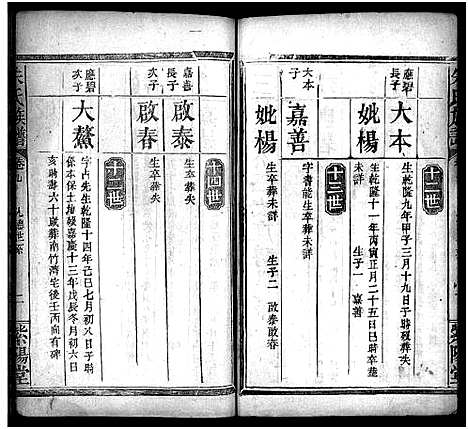 十二世
應碧長子
大本
生乾隆九年甲子三月十九日子時殁葬失
妣楊
生乾隆十一年丙寅正月二十五日時卒葬
未詳
生子一 嘉善
十三世
大本子
嘉善
字書龍生卒葬未詳
妣楊
生卒葬未詳 生子二 啟泰啟春
十四世
嘉善長子
啟泰
生卒葬失
次子
啟春
生卒葬失
十二世
應碧次子
大鰲
字占先生乾隆十四年己巳七月初八日子時
係本保士 嘉慶十三年戊辰冬月初六日
亥時壽六十歲葬南竹灣宅後壬丙向有碑
朱氏族譜
卷九
紫陽堂